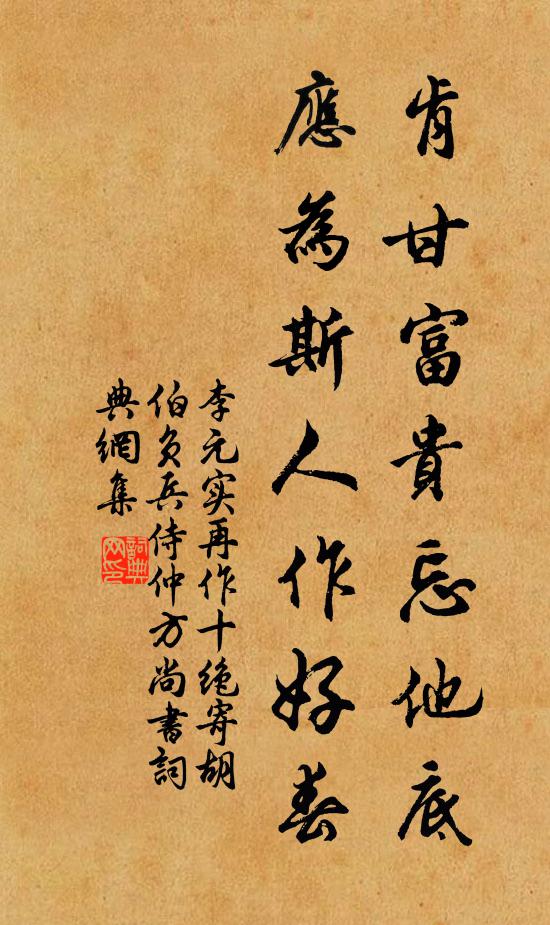 肯甘富貴忘他底
應為斯人作好春
李元实再作十绝寄胡
伯负兵侍仲方尚書詞
典網集
詞典
网印